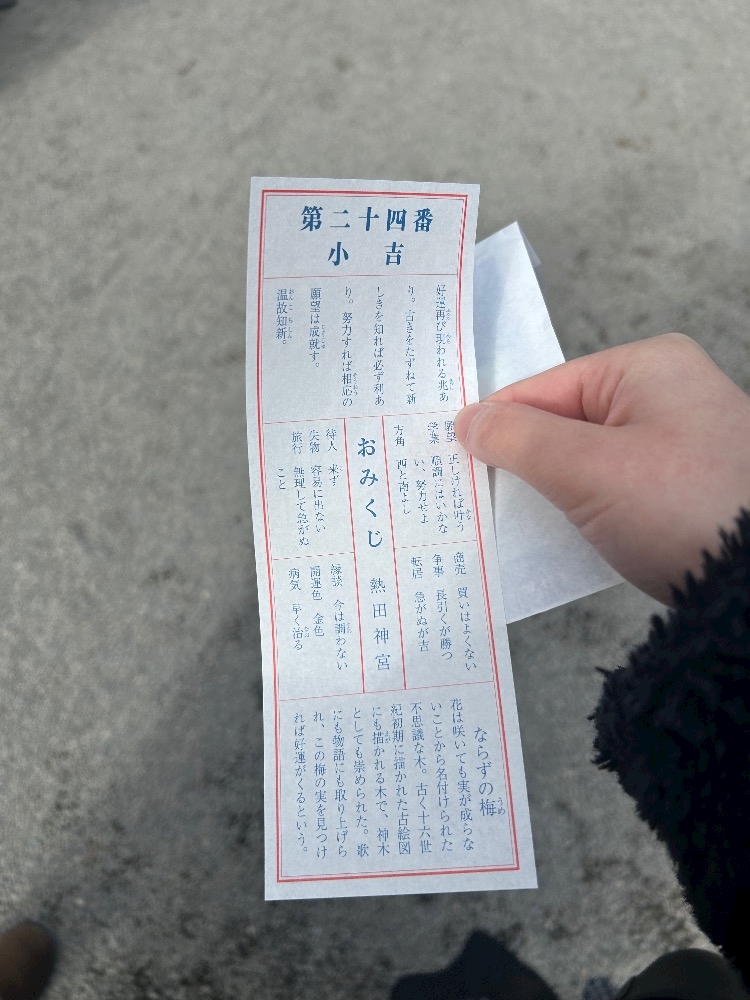 第二十四番
小吉
好運再び現われる兆あ
り。古きをたずねて新
しきを知れば必ず利あ
り。努力すれば相応の
願望は成就す。
温故知新。
願望 正しければ叶う
学業 順調にはいかな
い、努力せよ
方角 西と南よし
商売 買いはよくない
争事 長引くが勝つ
転居 急がぬが吉
おみくじ 熱田神宮
待人 来ず
失物 容易に出ない
旅行 無理して急がぬ
こと
縁談 今は調わない
開運色 金色
病気 早く治る
ならずの梅
花は咲いても実が成らな
いことから名付けられた
不思議な木。古く十六世
紀初期に描かれた古絵図
にも描かれる木で、神木
としても崇められた。歌
にも物語にも取り上げら
れ、この梅の実を見つけ
れば好運がくるという。